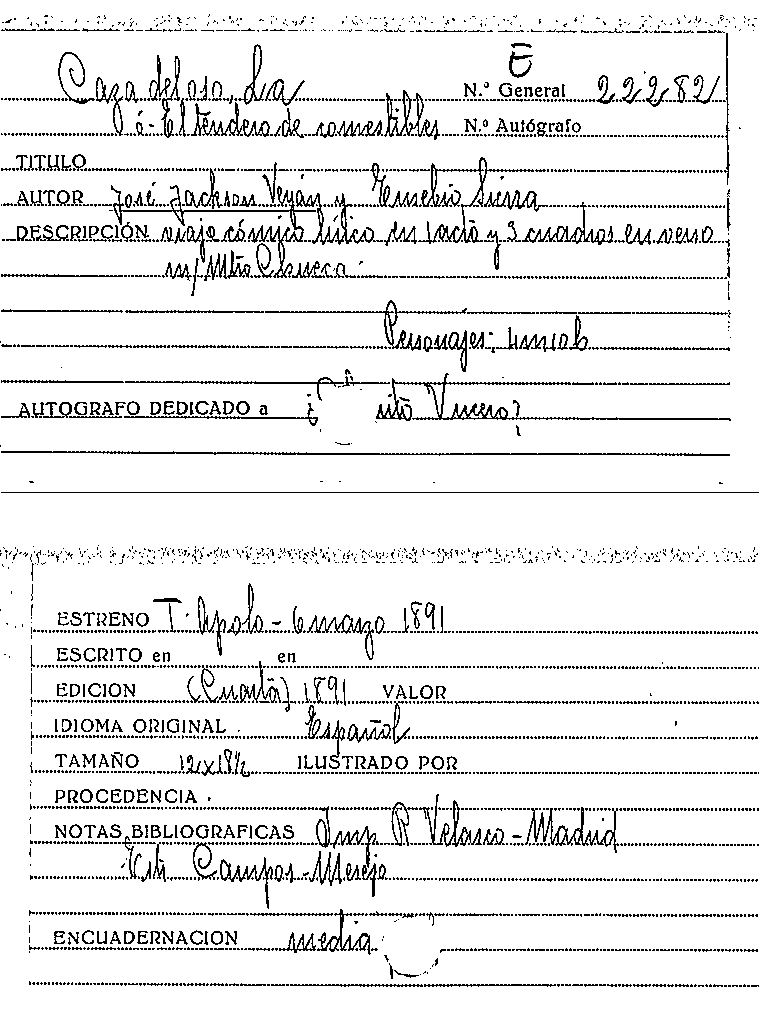 E
Caza del oso, La N.º General 22282
ó - El tendero de comestibles N.º Autógrafo
TITULO
AUTOR José Jackson Veyán y Eusebio Sierra
DESCRIPCIÓN viaje cómico lírico en 1 acto y 3 cuadros en verso
m/ Mtro Chueca.
Personajes:
AUTOGRAFO DEDICADO a
ESTRENO T. Apolo - 6 marzo 1891
ESCRITO en en
EDICION (Cuarta) 1891 VALOR
IDIOMA ORIGINAL Español
TAMAÑO 12x18½ ILUSTRADO POR
PROCEDENCIA.
NOTAS BIBLIOGRAFICAS Imp R Velasco - Madrid
Campos -
ENCUADERNACION media